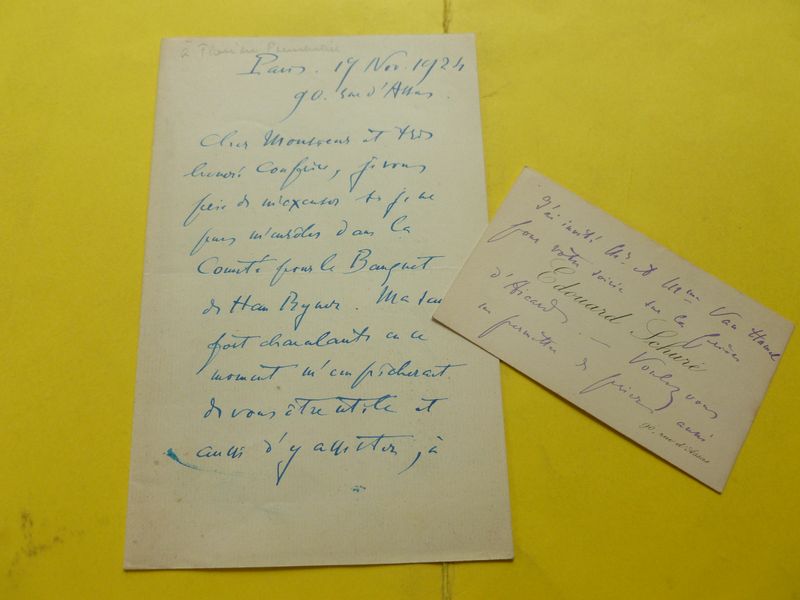 à Florian Parmentier
Paris. 19 Nov. 1924
90. rue d'Assas.
Cher Monsieur et très
honoré Confrère, je vous
prie de m'excuser si je ne
puis m'enrôler dans le
Comité pour le Banquet
de Han Ryner. Ma santé
fort chancelante en ce
moment m'empêcherait
de vous être utile et
aussi d'y assister, à
J'ai invité Mr et Mme Van Hamel
pour votre soirée sur la
d'Aicard. — Voulez vous
me permettre de aussi
Edouard Schuré
90, rue d'Assas